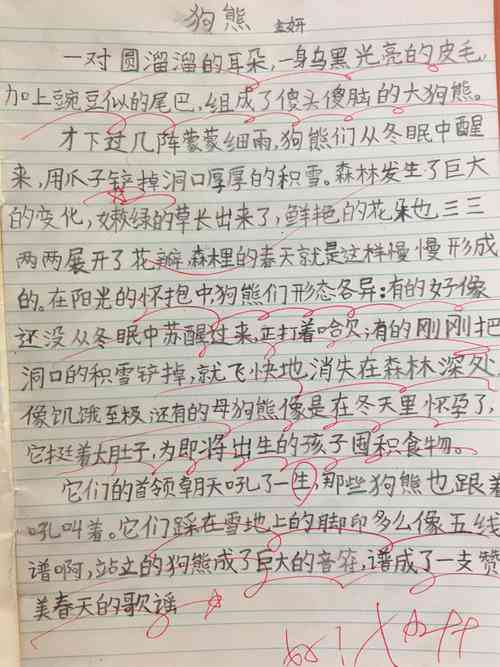 狗熊
一对圆溜溜的耳朵，一身乌黑光亮的皮毛，
加上豌豆似的尾巴，组成了傻头傻脑的大狗熊。
才下过几阵蒙蒙细雨，狗熊们从冬眠中醒
来，用爪子铲掉洞口厚厚的积雪。森林发生了巨大
的变化，嫩绿的草长出来了，鲜艳的花朵也三三
两两展开了花瓣。森林里的春天就是这样慢慢形成
的。在阳光的怀抱中，狗熊们形态各异：有的好像
还没从冬眠中苏醒过来，正打着哈欠；有的刚刚把
洞口的积雪铲掉，就飞快地消失在森林深处，
像饥饿至极，还有的母狗熊像是在冬天里怀孕了，
它挺着大肚子，为即将出生的孩子囤积食物。
它们的首领朝天吼了一生，那些狗熊也跟着
吼叫着。它们踩在雪地上的脚印多么像五线
谱啊，站立的狗熊成了巨大的音符，谱成了一支赞
美春天的歌谣